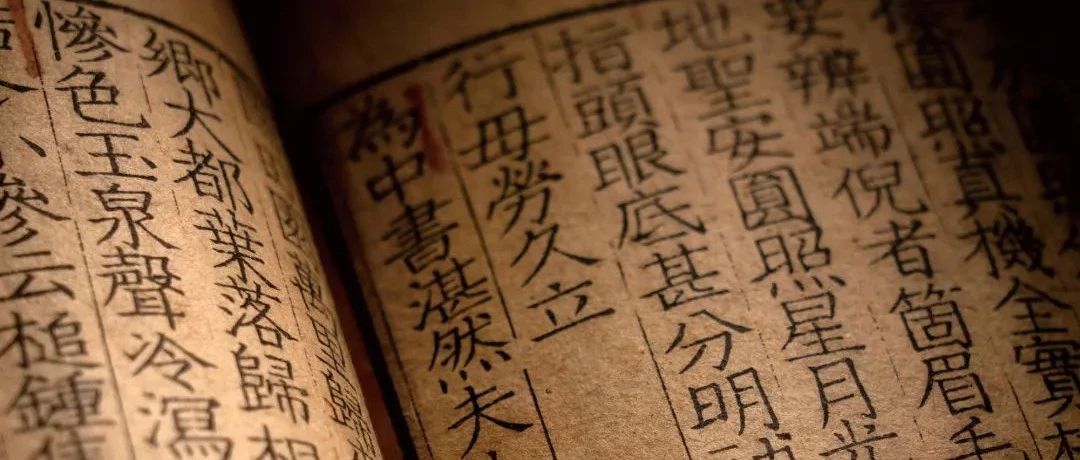 圓照真機全實
要辨端倪者箇眉毛
地聖安圓照星月光
指頭眼底甚分明
行毋勞久立
為中書湛然夫
鄉大都葉落歸根
慘色玉泉聲冷瀉
小參云槌鍾